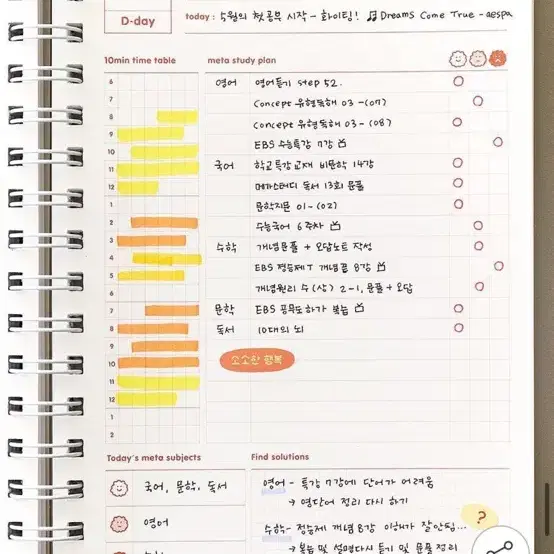 D-day
today : 5월의 첫 공부 시작 - 화이팅! ♬ Dreams Come True - aespa
10min time table
meta study plan
6
7
8
9
10
11
12
1
2
3
4
5
6
7
8
9
10
11
12
1
2
영어 영어듣기 step 52.
Concept 유형독해 03 - (07)
Concept 유형독해 03 - (08)
EBS 수능특강 7강
국어 학교특강교재 비문학 14강
메가스터디 독서 13회 문풀
문학지문 01 - (02)
수능국어 6주차
수학 개념문풀 + 오답노트 작성
EBS 정승제T 개념끝 8강
개념원리 수(상) 2-1, 문풀 + 오답
문학 EBS 공무도하가 복습
독서 10대의 뇌
소소한 행복
Today's meta subjects
국어, 문학, 독서
영어
Find solutions
영어 - 특강 7강에 단어가 어려움
→ 영단어 정리 다시 하기
?
수학 - 정승제 개념 8강 이해가 잘안됨...
→ 복습 및 설명다시 듣기 및 문풀 정리